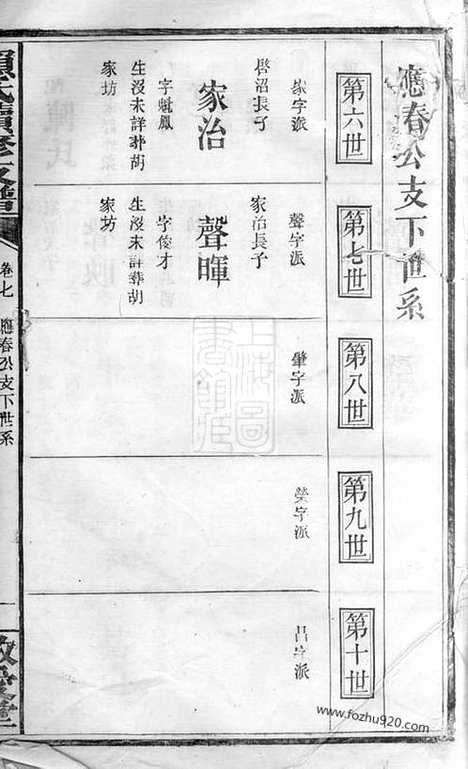 應春公支下世系
第六世
家字派
啓沼長子
家治
字魁鳳
生没未詳葬胡
家坊
第七世
聲字派
家治長子
聲暉
字俊才
生没未詳葬胡
家坊
第八世
肇字派
第九世
榮字派
第十世
昌字派
卷七
應春公支下世系
上海圖書館藏
www.fozhu920.com